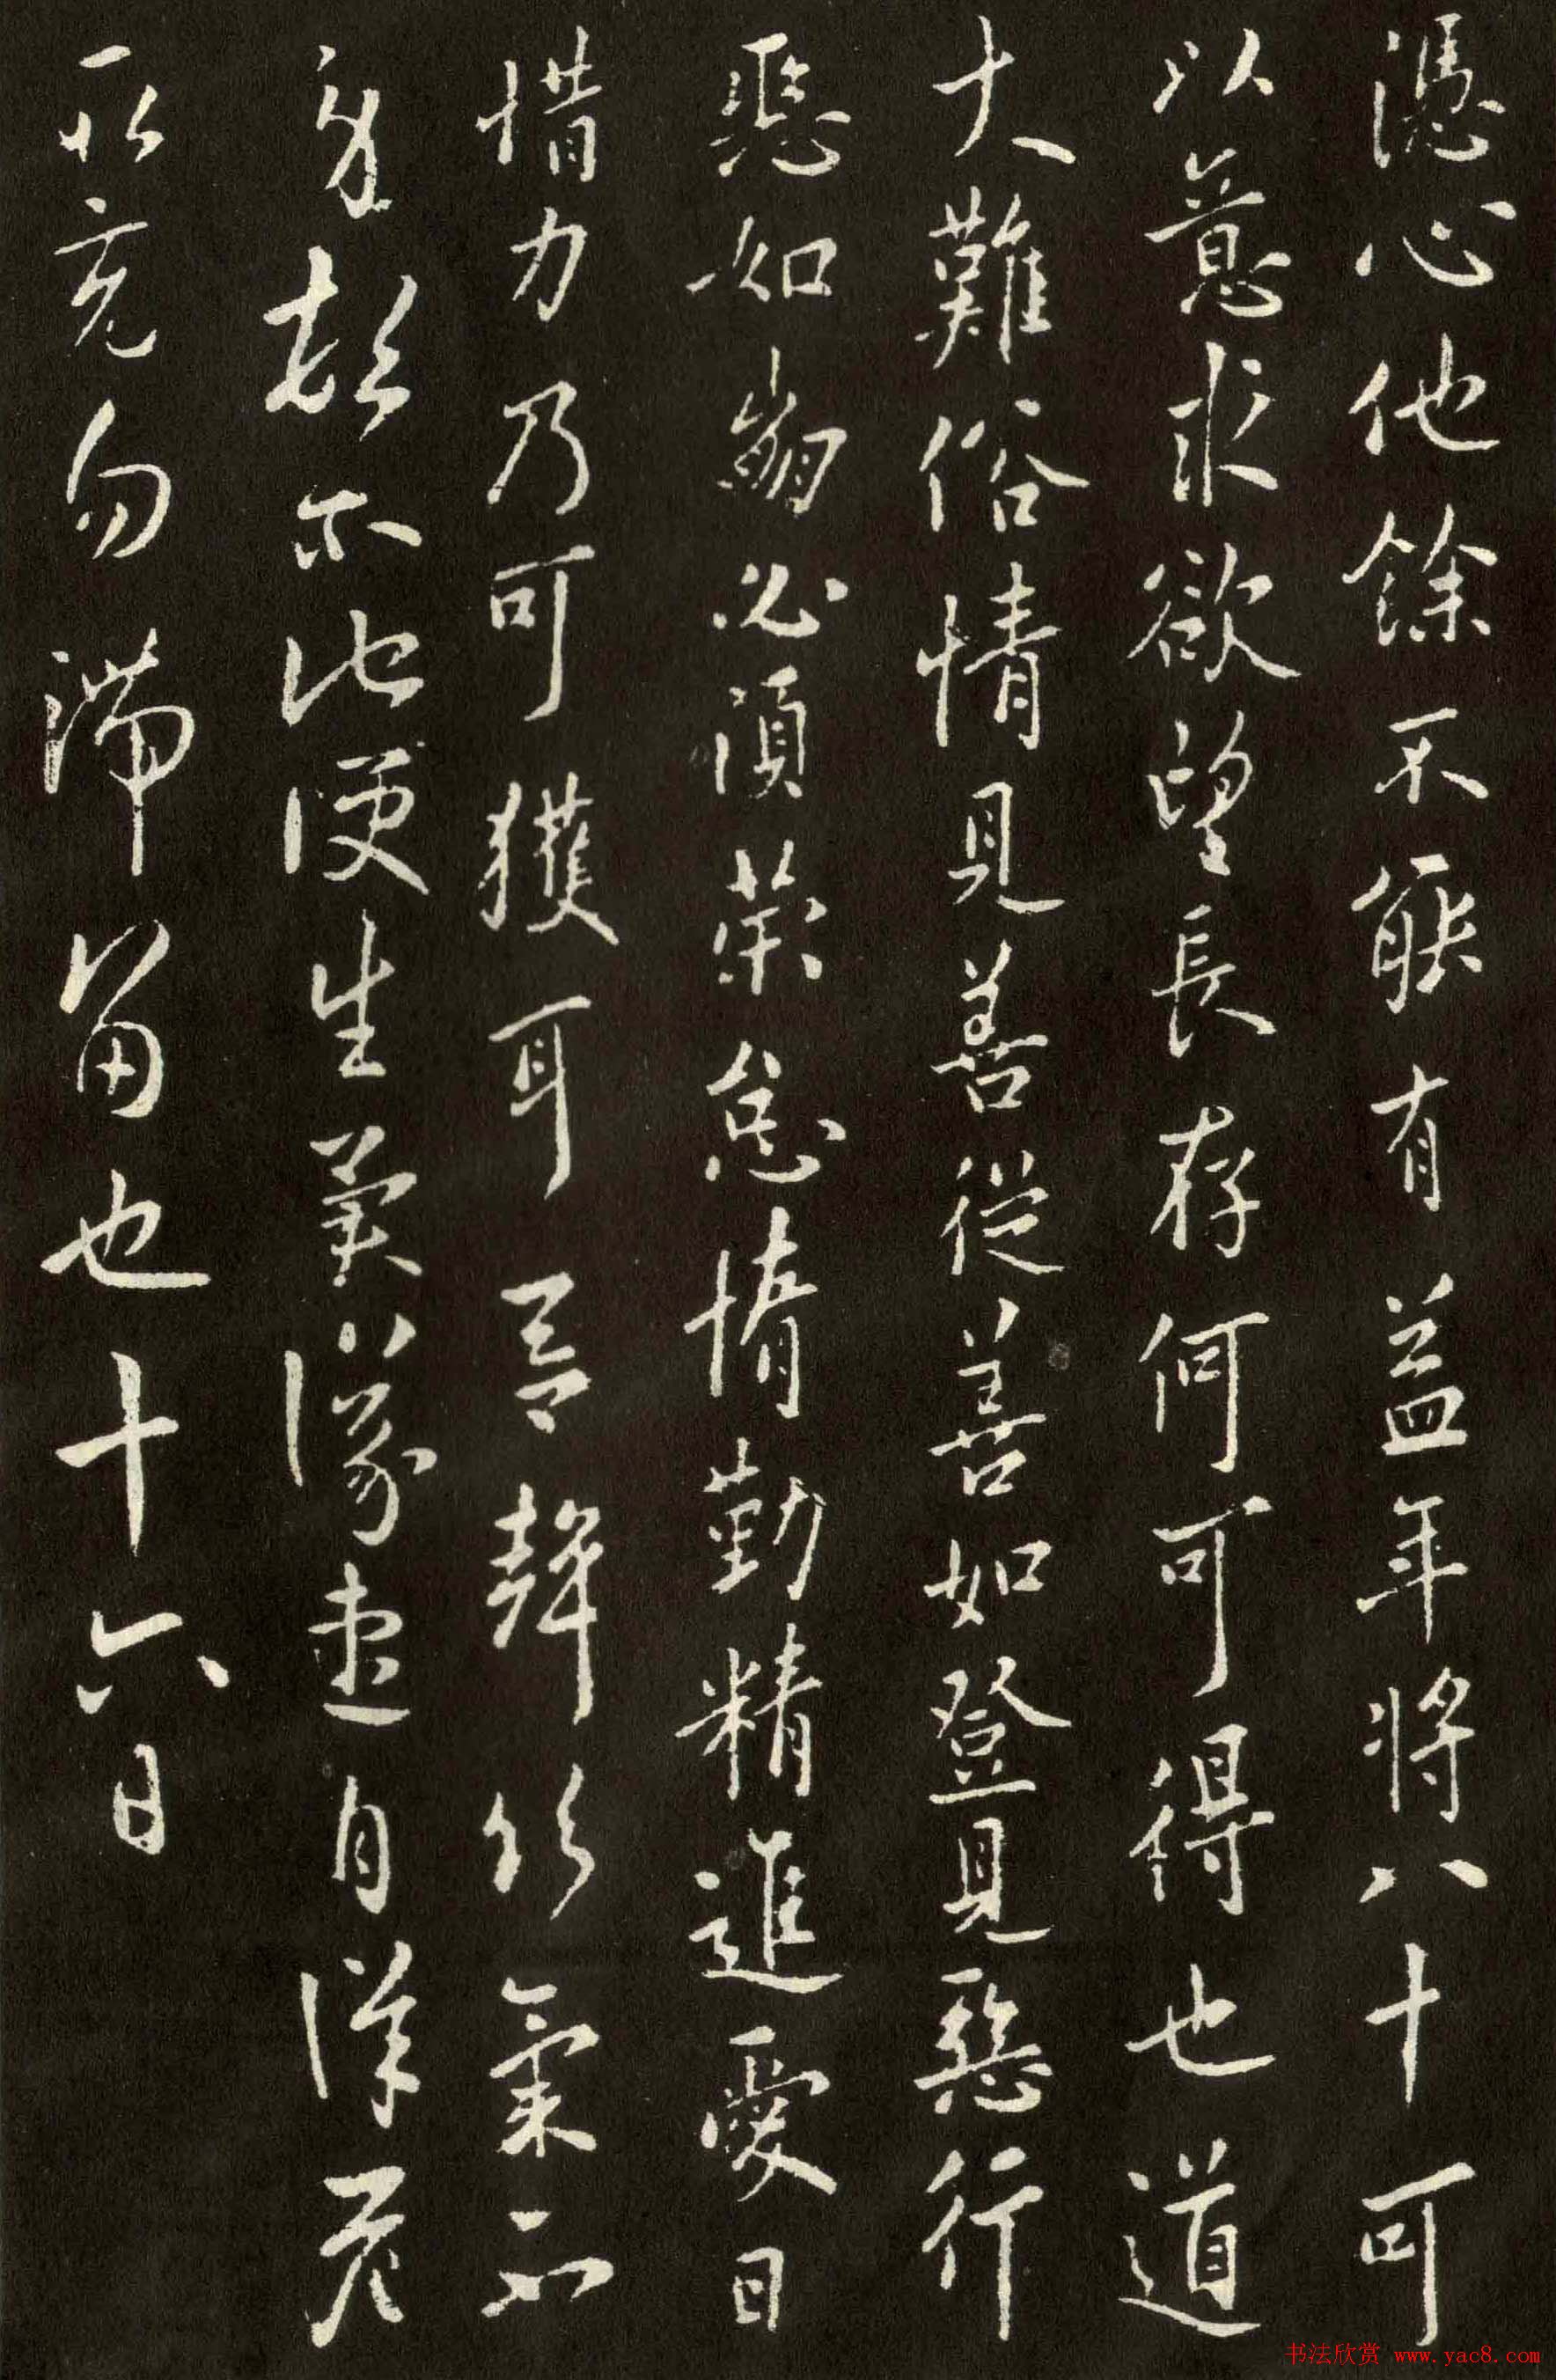 憑心他餘不能有益年將八十可
以意求欲望長存何可得也道
大難俗情見善從善如登見惡行
惡如崩必須策怠惰勤精進愛日
惜力乃可獲耳聲氣不
便生自
勿滯留也十六日
书法欣赏 www.yac8.com